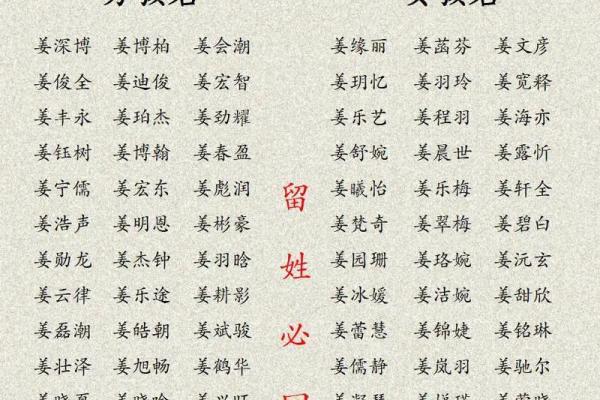 姜深博 姜博柏 姜会潮 姜缘丽 姜菡芬 姜文彦
姜俊全 姜迪俊 姜宏智 姜玥忆 姜羽玲 姜宽释
姜丰永 姜珀杰 姜劲耀 姜乐艺 姜程羽 姜海亦
姜钰树 姜博翰 姜春盈 姜舒婉 姜晨世 姜露忻
姜宁儒 姜宏东 姜彪润 姜曦怡 姜乐梅 姜轩全
姜浩声 姜明恩 姜彬豪 姜梵奇 姜翠梅 姜碧白
姜勋龙 姜杰钟 姜羽晗 姜园珊 姜珞婉 姜沅玄
姜云律 姜乐途 姜耕影 姜冰媛 姜洁婉 姜甜欣
姜磊潮 姜皓朝 姜斌骏 姜蕾慧 姜锦婕 姜铭琳
姜壮泽 姜旭畅 姜鹤华 姜儒静 姜岚羽 姜驰尔
留姓必